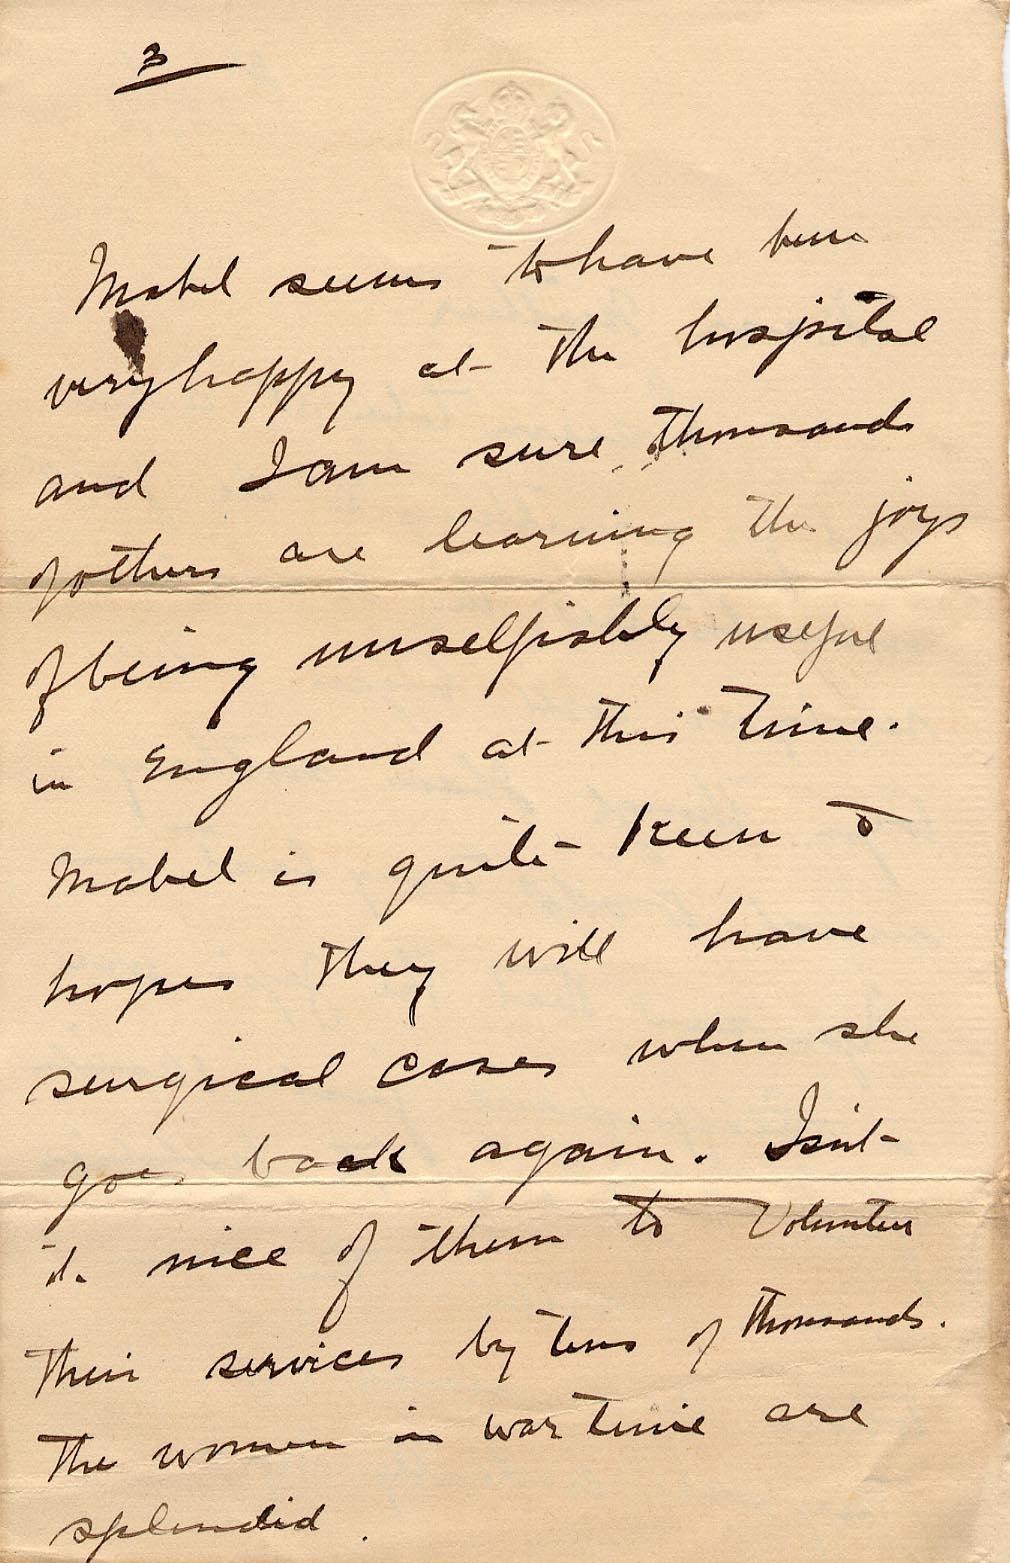 3
Mabel seems to have been
very happy at the hospital
and I am sure thousands
of others are learning the joys
of being unselfishly useful
in England at this time.
Mabel is quite keen &
hopes they will have
surgical cases when she
goes back again. Isn't
it nice of them to Volunteer
their services by tens of thousands.
The women in war time are
splendid.